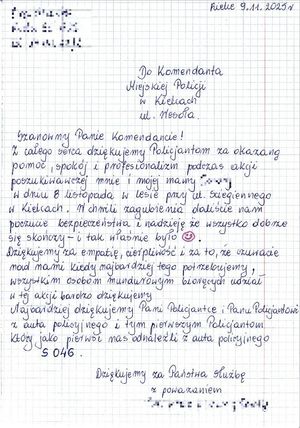 Kielce 9.11.2025r
Do Komendanta
Miejskiej Policji
w Kielcach
ul. Wesoła.
Szanowny Panie Komendancie!
Z całego serca dziękujemy Policjantom za okazaną
pomoc, spokój i profesjonalizm podczas akcji
poszukiwawczej mnie i mojej mamy
w dniu 8 listopada w lesie przy ul. Ściegiennego
w Kielcach. W chwili zagubienia daliście nam
poczucie bezpieczeństwa i nadzieję że wszystko dobrze
się skończy – i tak właśnie było 😊.
Dziękujemy za empatię, cierpliwość i za to, że czuwacie
nad nami kiedy najbardziej tego potrzebujemy,
wszystkim osobom mundurowym biorących udział
w tej akcji bardzo dziękujemy
Najbardziej dziękujemy Pani Policjantce i Panu Policjantowi
z auta policyjnego i tym pierwszym Policjantom
którzy jako pierwsi nas odnaleźli z auta policyjnego
S 046.
Dziękujemy za Państwa służbę
z poważaniem